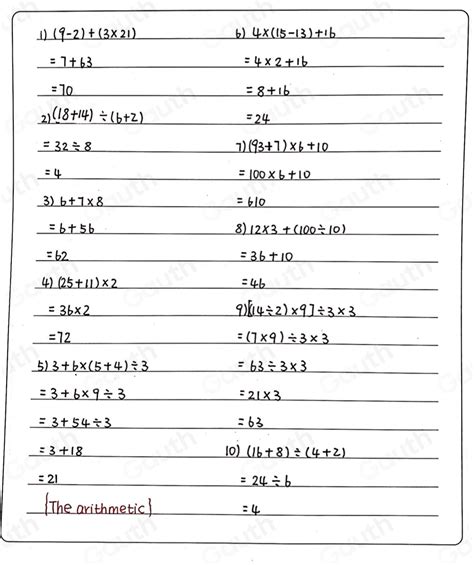 1) (9-2)+(3×21)
= 7+63
= 70
2) (18+14) ÷ (6+2)
= 32 ÷ 8
= 4
3) 6+7×8
= 6+56
= 62
4) (25+11)×2
= 36×2
= 72
5) 3+6×(5+4)÷3
= 3+6×9÷3
= 3+54÷3
= 3+18
= 21
{The arithmetic}
6) 4×(15-13)+16
= 4×2+16
= 8+16
= 24
7) (93+7)×6+10
= 100×6+10
= 610
8) 12×3+(100÷10)
= 36+10
= 46
9) [(14÷2)×9]÷3×3
= (7×9)÷3×3
= 63÷3×3
= 21×3
= 63
10) (16+8)÷(4+2)
= 24÷6
= 4
Gauth